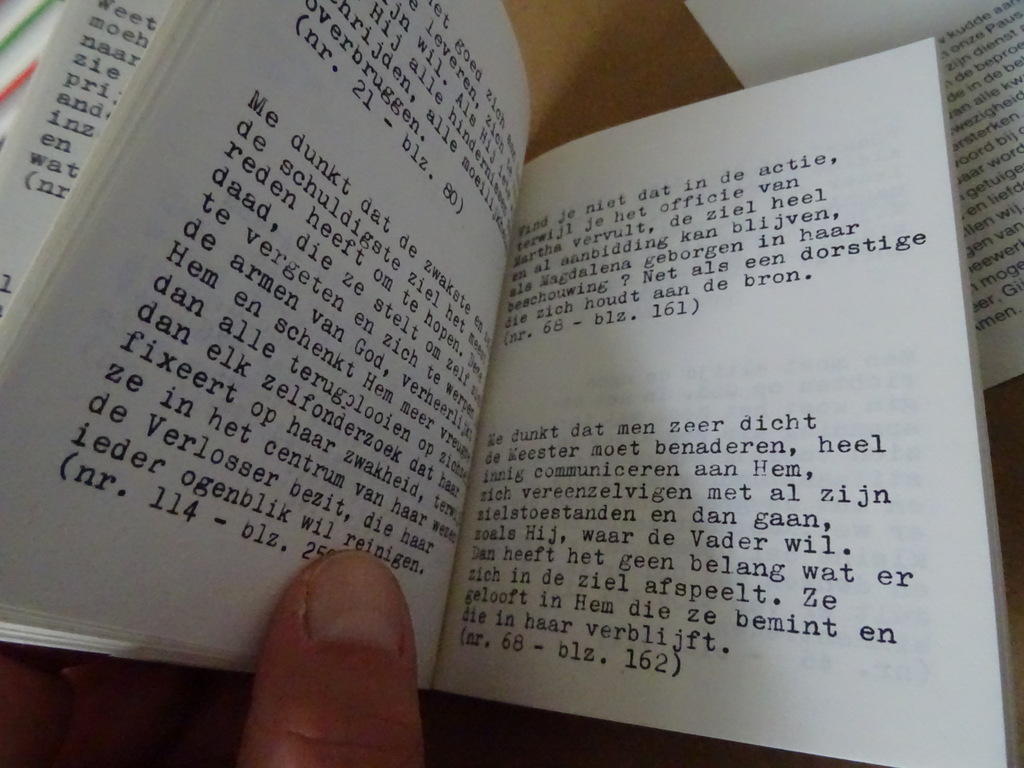 Weet
moeh
naar
zie
pri
and
inz
en
wat
(nr
het
goed
leveren, zich
Hij wil. Als Hij
alle hindernissen
overbruggen. alle
(nr. 21 - blz. 80)
Me dunkt dat de zwakste en
de schuldigste ziel het meest
reden heeft om te hopen. Deze
daad, die ze stelt om zelf
te vergeten en zich te werpen
de armen van God, verheerlijkt
Hem en schenkt Hem meer vreugde
dan alle terugplooien op zichzelf
dan elk zelfonderzoek dat haar
fixeert op haar zwakheid, terwijl
ze in het centrum van haar wezen
de Verlosser bezit, die haar
ieder ogenblik wil reinigen.
(nr. 114 - blz.
Vind je niet dat in de actie,
terwijl je het officie van
Martha vervult, de ziel heel
en al aanbidding kan blijven,
als Magdalena geborgen in haar
beschouwing ? Net als een dorstige
die zich houdt aan de bron.
(nr. 68 - blz. 161)
Me dunkt dat men zeer dicht
de Meester moet benaderen, heel
innig communiceren aan Hem,
zich vereenzelvigen met al zijn
zielstoestanden en dan gaan,
zoals Hij, waar de Vader wil.
Dan heeft het geen belang wat er
zich in de ziel afspeelt. Ze
gelooft in Hem die ze bemint en
die in haar verblijft.
(nr. 68 - blz. 162)
kudde aan
onze Paus
zijn dienst
de beproe
in de be
van alle kw
wezigheid
ersterken
oord bij
getuige
en liefde